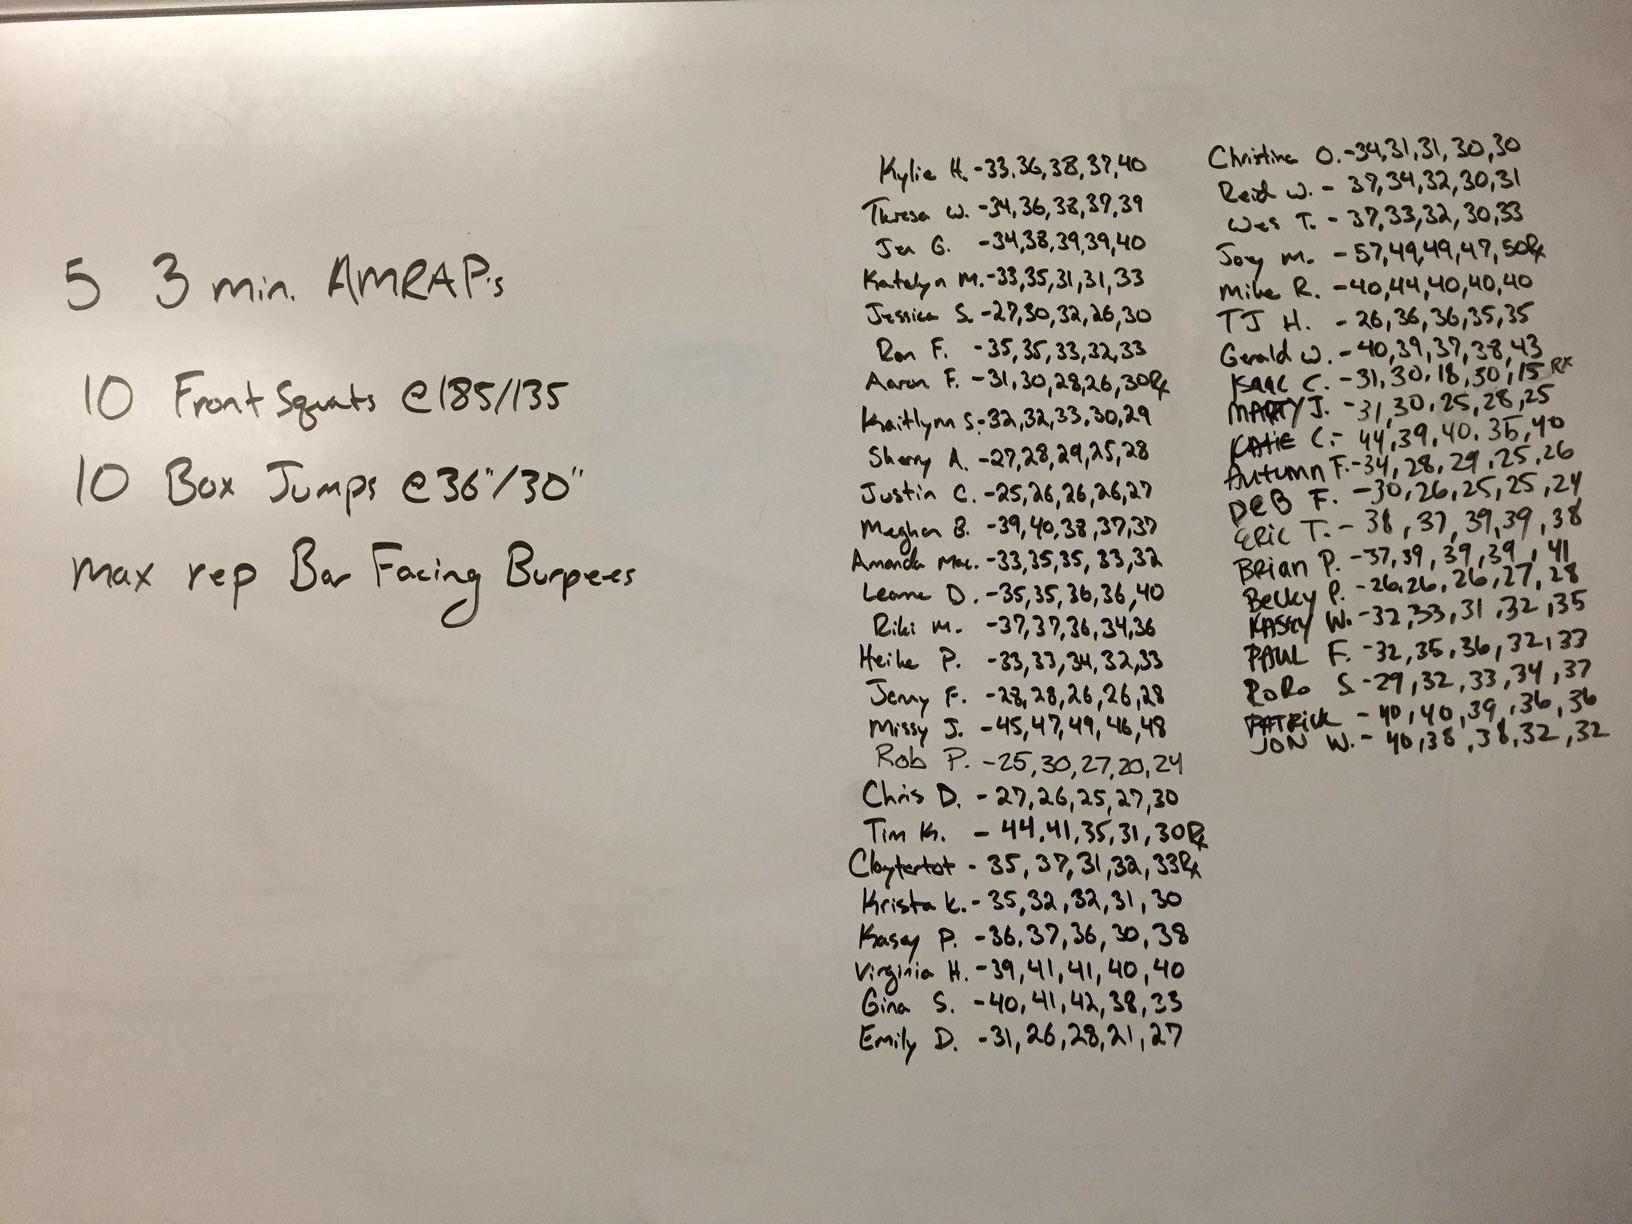 5 3 min. AMRAP's
10 Front Squats @185/135
10 Box Jumps @36"/30"
max rep Bar Facing Burpees
Kylie H. -33,36,38,37,40
Theresa W. -34,36,38,37,39
Jen G. -34,38,39,39,40
Katelyn M. -33,35,31,31,33
Jessica S. -27,30,32,26,30
Ron F. -35,35,33,32,33
Aaron F. -31,30,28,26,30Rx
Kaitlynn S. -32,32,33,30,29
Sherry A. -27,28,29,25,28
Justin C. -25,26,26,26,27
Meghan B. -39,40,38,37,37
Amanda Mac. -33,35,35,33,32
Leanne D. -35,35,36,36,40
Riki M. -37,37,36,34,36
Heike P. -33,33,34,32,33
Jenny F. -28,28,26,26,28
Missy J. -45,47,49,46,48
Rob P. -25,30,27,20,24
Chris D. -27,26,25,27,30
Tim K. - 44,41,35,31,30Rx
Claytertot - 35,37,31,32,33Rx
Krista K. - 35,32,32,31,30
Kasey P. -36,37,36,30,38
Virginia H. -39,41,41,40,40
Gina S. -40,41,42,38,33
Emily D. -31,26,28,21,27
Christina O. -34,31,31,30,30
Reid W. - 37,34,32,30,31
Wes T. - 37,33,32,30,33
Joey M. - 57,49,49,47,50Rx
Mike R. -40,44,40,40,40
TJ H. - 26,36,36,35,35
Gerald W. -40,39,37,38,43
ISAAC C. -31,30,18,30,15 Rx
MARTY J. -31,30,25,28,25
KATIE C. - 44,39,40,35,40
Autumn F. -34,28,29,25,26
DEB F. -30,26,25,25,24
ERIC T. - 38,37,39,39,38
BRIAN P. -37,39,39,39,41
BECKY P. -26,26,26,27,28
KASEY W. -32,33,31,32,35
PAUL F. -32,35,36,32,33
RORO S -29,32,33,34,37
PATRICK - 40,40,39,36,36
JON W. - 40,38,38,32,32